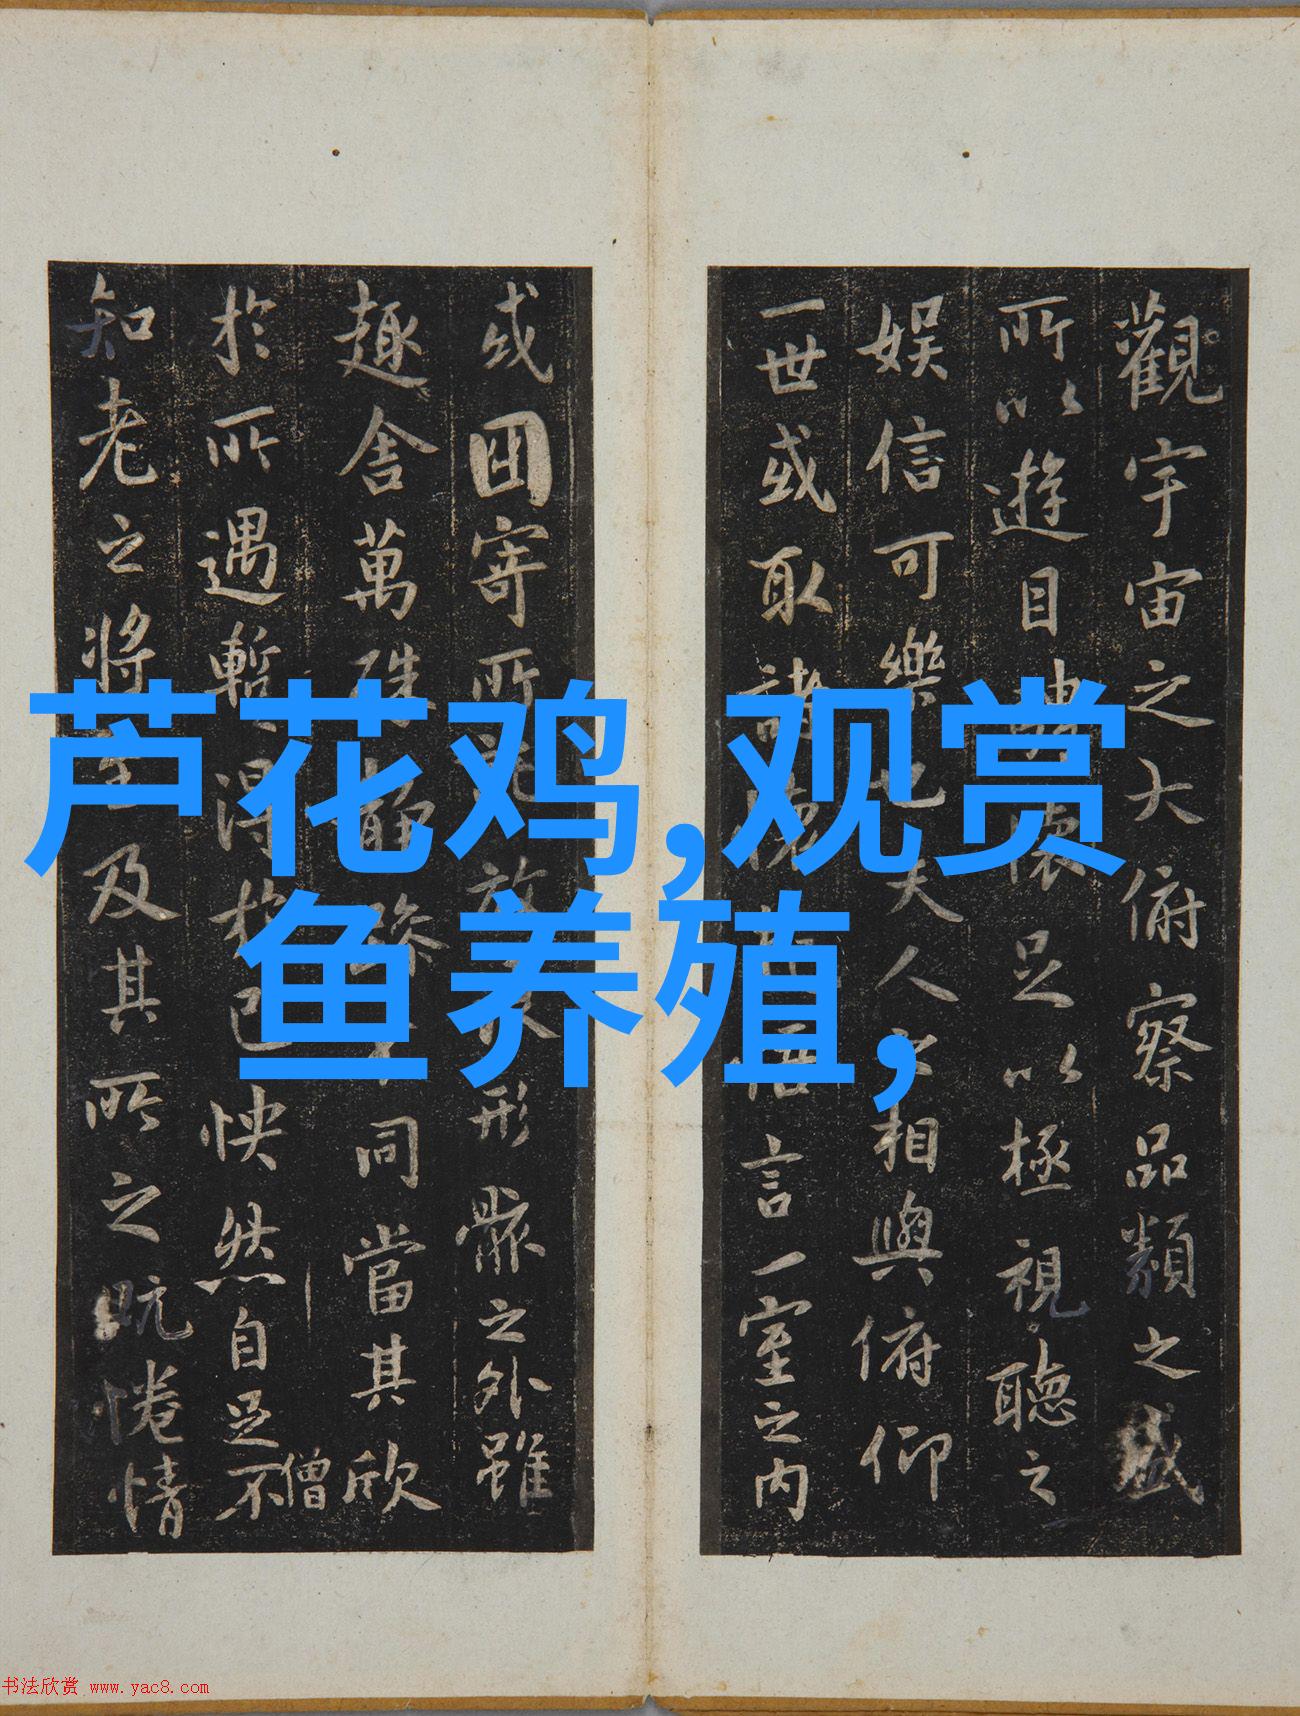 觀宇宙之大俯察品類之盛
所以遊目騁懷足以極視聽之
娱信可樂也夫人之相與俯仰
一世或取諸懷悟言一室之内
或因寄所放浪形骸之外雖
趣舍萬殊靜躁不同當其欣
僧
於所遇暫得於己怏然自足不
知老之將至及其所之既惓情
芦花鸡,观赏
鱼养殖,
书法欣赏 www.yac8.com